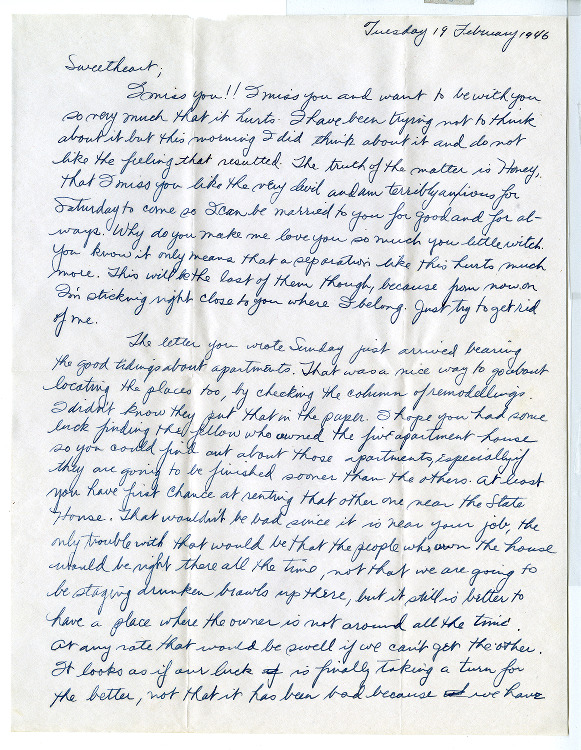 Tuesday 19 February 1946
Sweetheart;
I miss you!! I miss you and want to be with you
so very much that it hurts. I have been trying not to think
about it but this morning I did think about it and do not
like the feeling that resulted. The truth of the matter is Honey,
that I miss you like the very devil and am terribly anxious for
Saturday to come so I can be married to you for good and for al-
ways. Why do you make me love you so much you little witch.
You know it only means that a separation like this hurts much
more. This will be the last of them though, because from now on
I'm sticking right close to you where I belong. Just try to get rid
of me.
The letter you wrote Sunday just arrived bearing
the good tidings about apartments. That was a nice way to go about
locating the places too, by checking the column of remodellings.
I didn't know they put that in the paper. I hope you had some
luck finding the fellow who owned the five apartment house
so you could find out about those apartments, especially if
they are going to be finished sooner than the others. At least
you have first chance at renting that other one near the State
House. That wouldn't be bad since it is near your job, the
only trouble with that would be that the people who own the house
would be right there all the time, not that we are going to
be staging drunken brawls up there, but it still is better to
have a place where the owner is not around all the time.
At any rate that would be swell if we can't get the other.
It looks as if our luck is finally taking a turn for
the better, not that it has been bad because we have